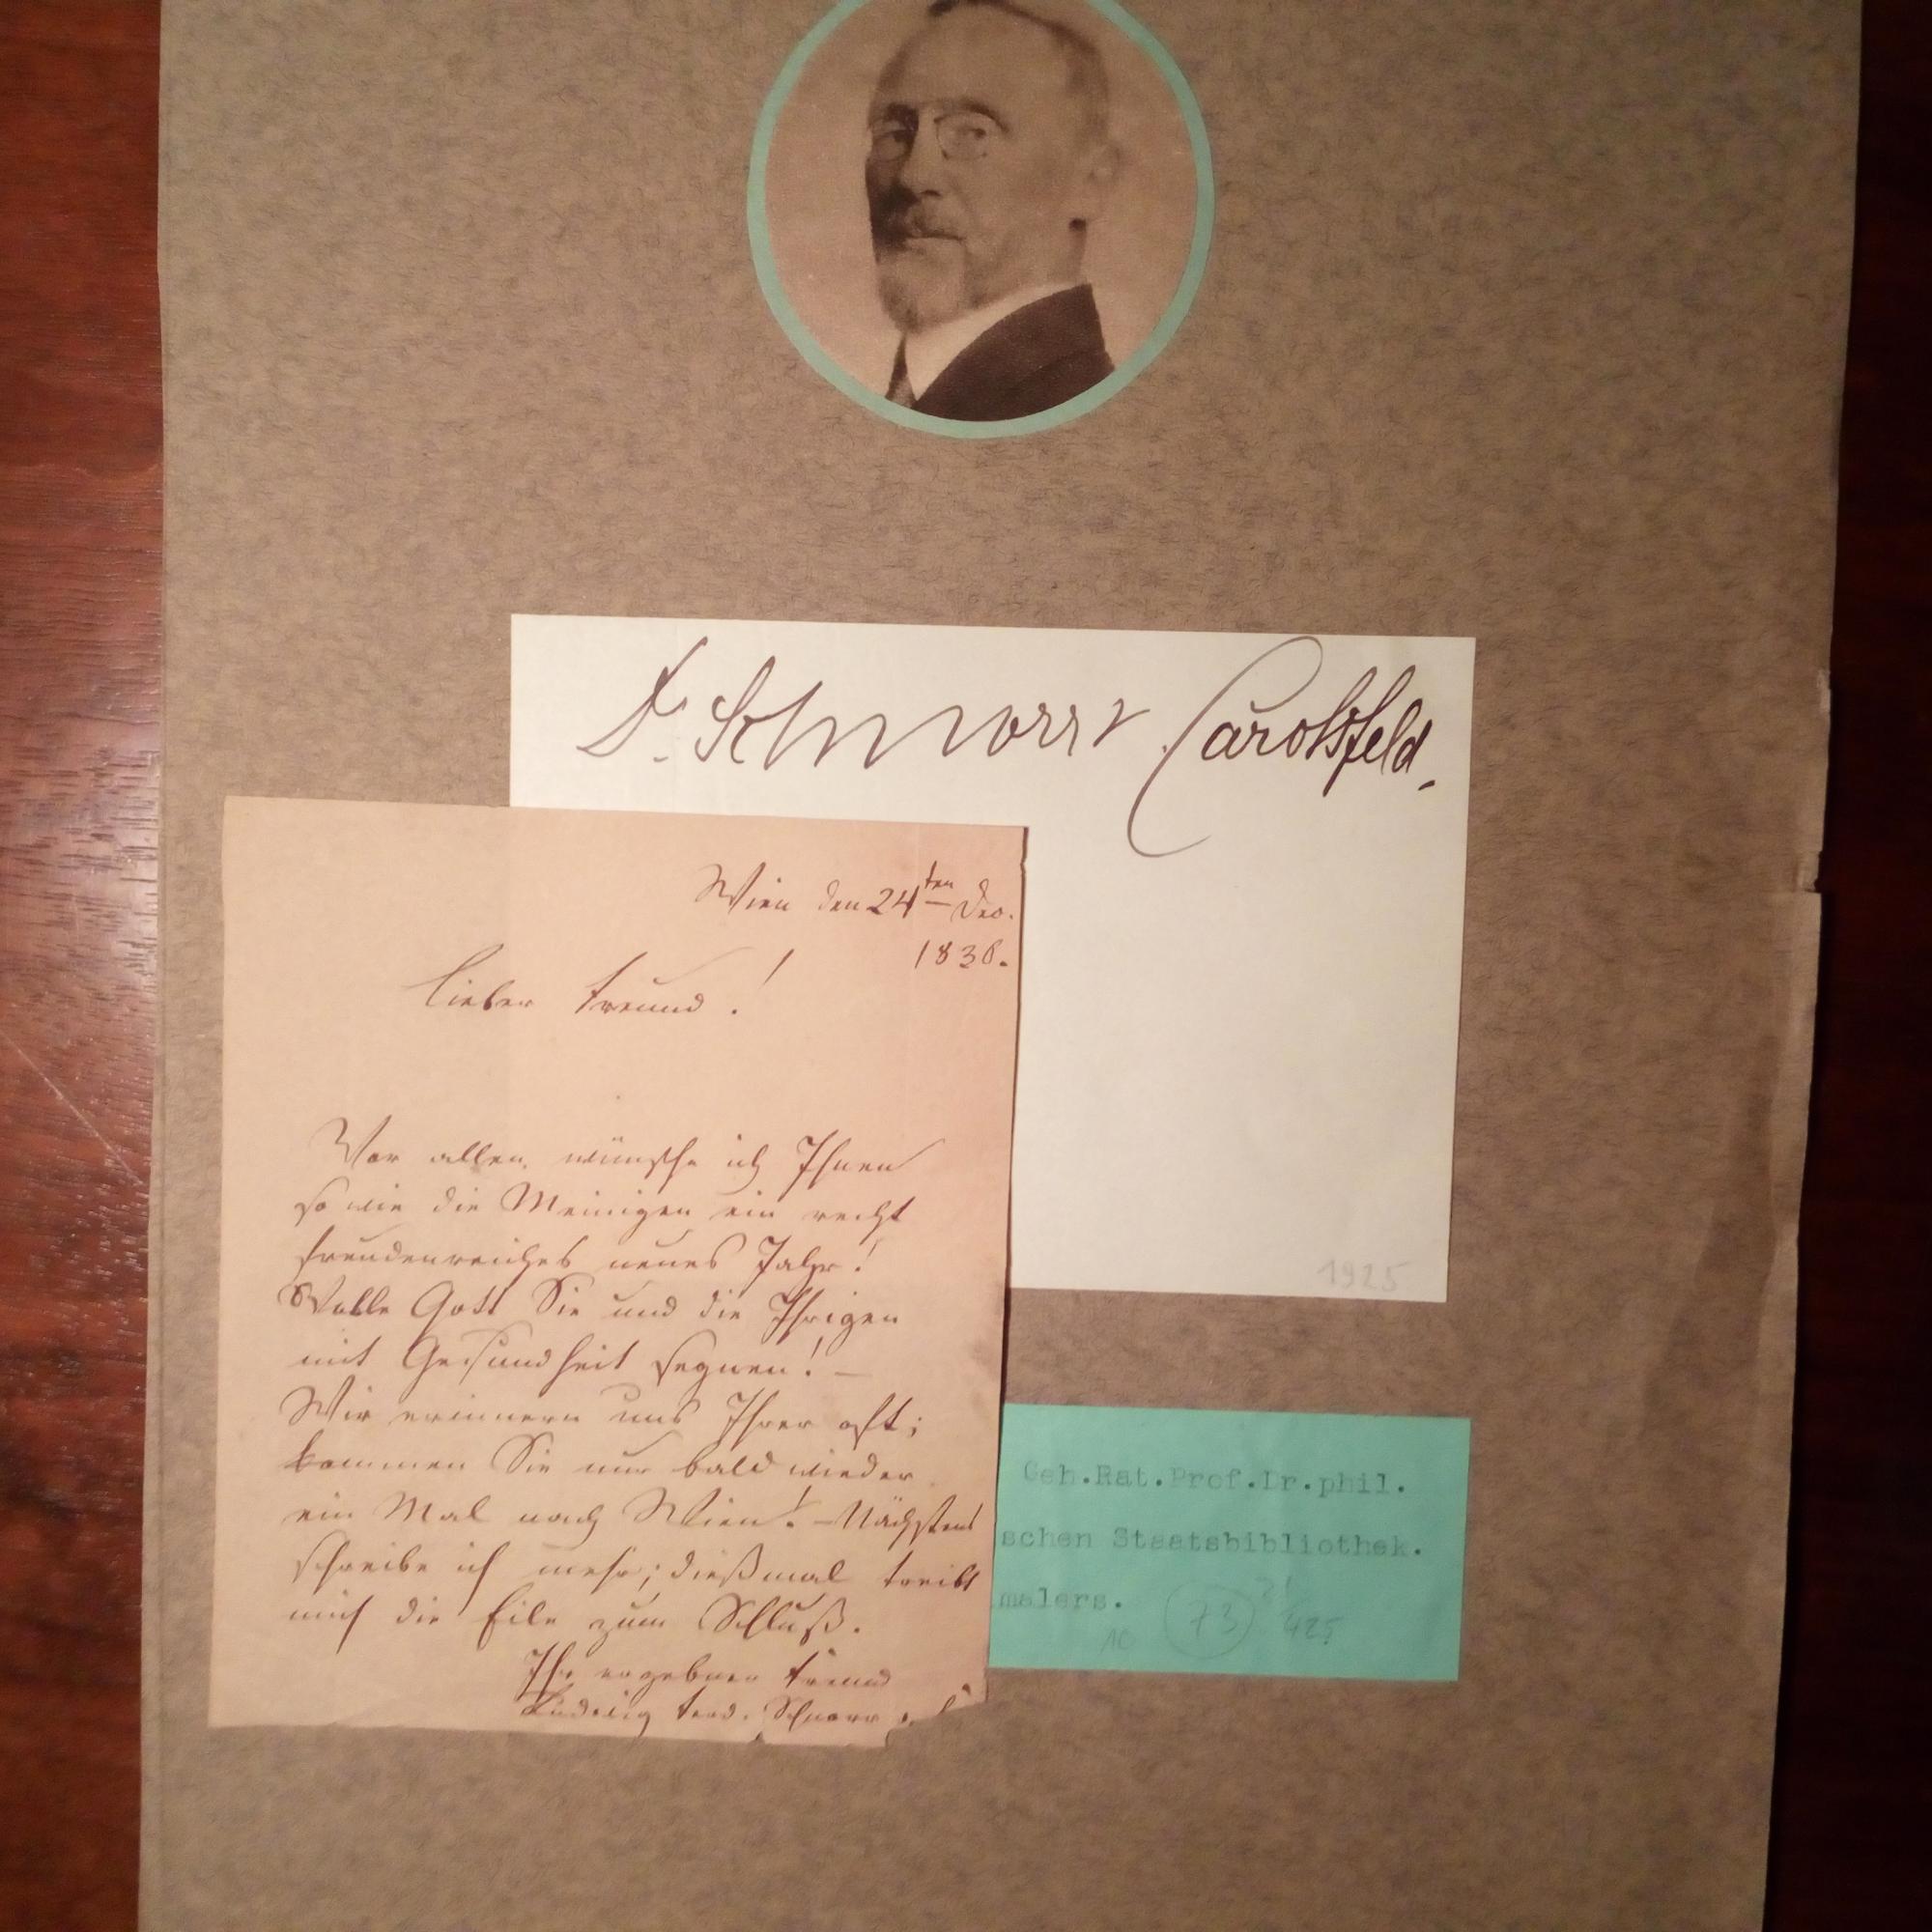 Dr. Schnorr v. Carolsfeld.
Wien den 24ten Dec.
1836.
Lieber Freund!
Vor allen wünsche ich Ihnen
so wie die Meinigen ein recht
freudenreiches neues Jahr!
Wolle Gott Sie und die Ihrigen
mit Gesundheit segnen! —
Wir erinnern uns Ihrer oft;
kommen Sie nur bald wieder
ein Mal nach Wien! — Nächstens
schreibe ich mehr; dießmal treibt
mich die Eile zum Schluß.
Ihr ergebner Freund
Ludwig Ferd. Schnorr v.
1925
Geh.Rat.Prof.Dr.phil.
schen Staatsbibliothek.
malers.
10 73 425